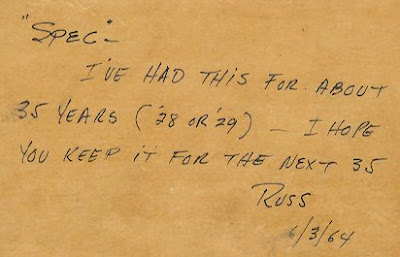 "SPEC" –
I'VE HAD THIS FOR ABOUT
35 YEARS ('28 OR '29) – I HOPE
YOU KEEP IT FOR THE NEXT 35
RUSS
6/3/64